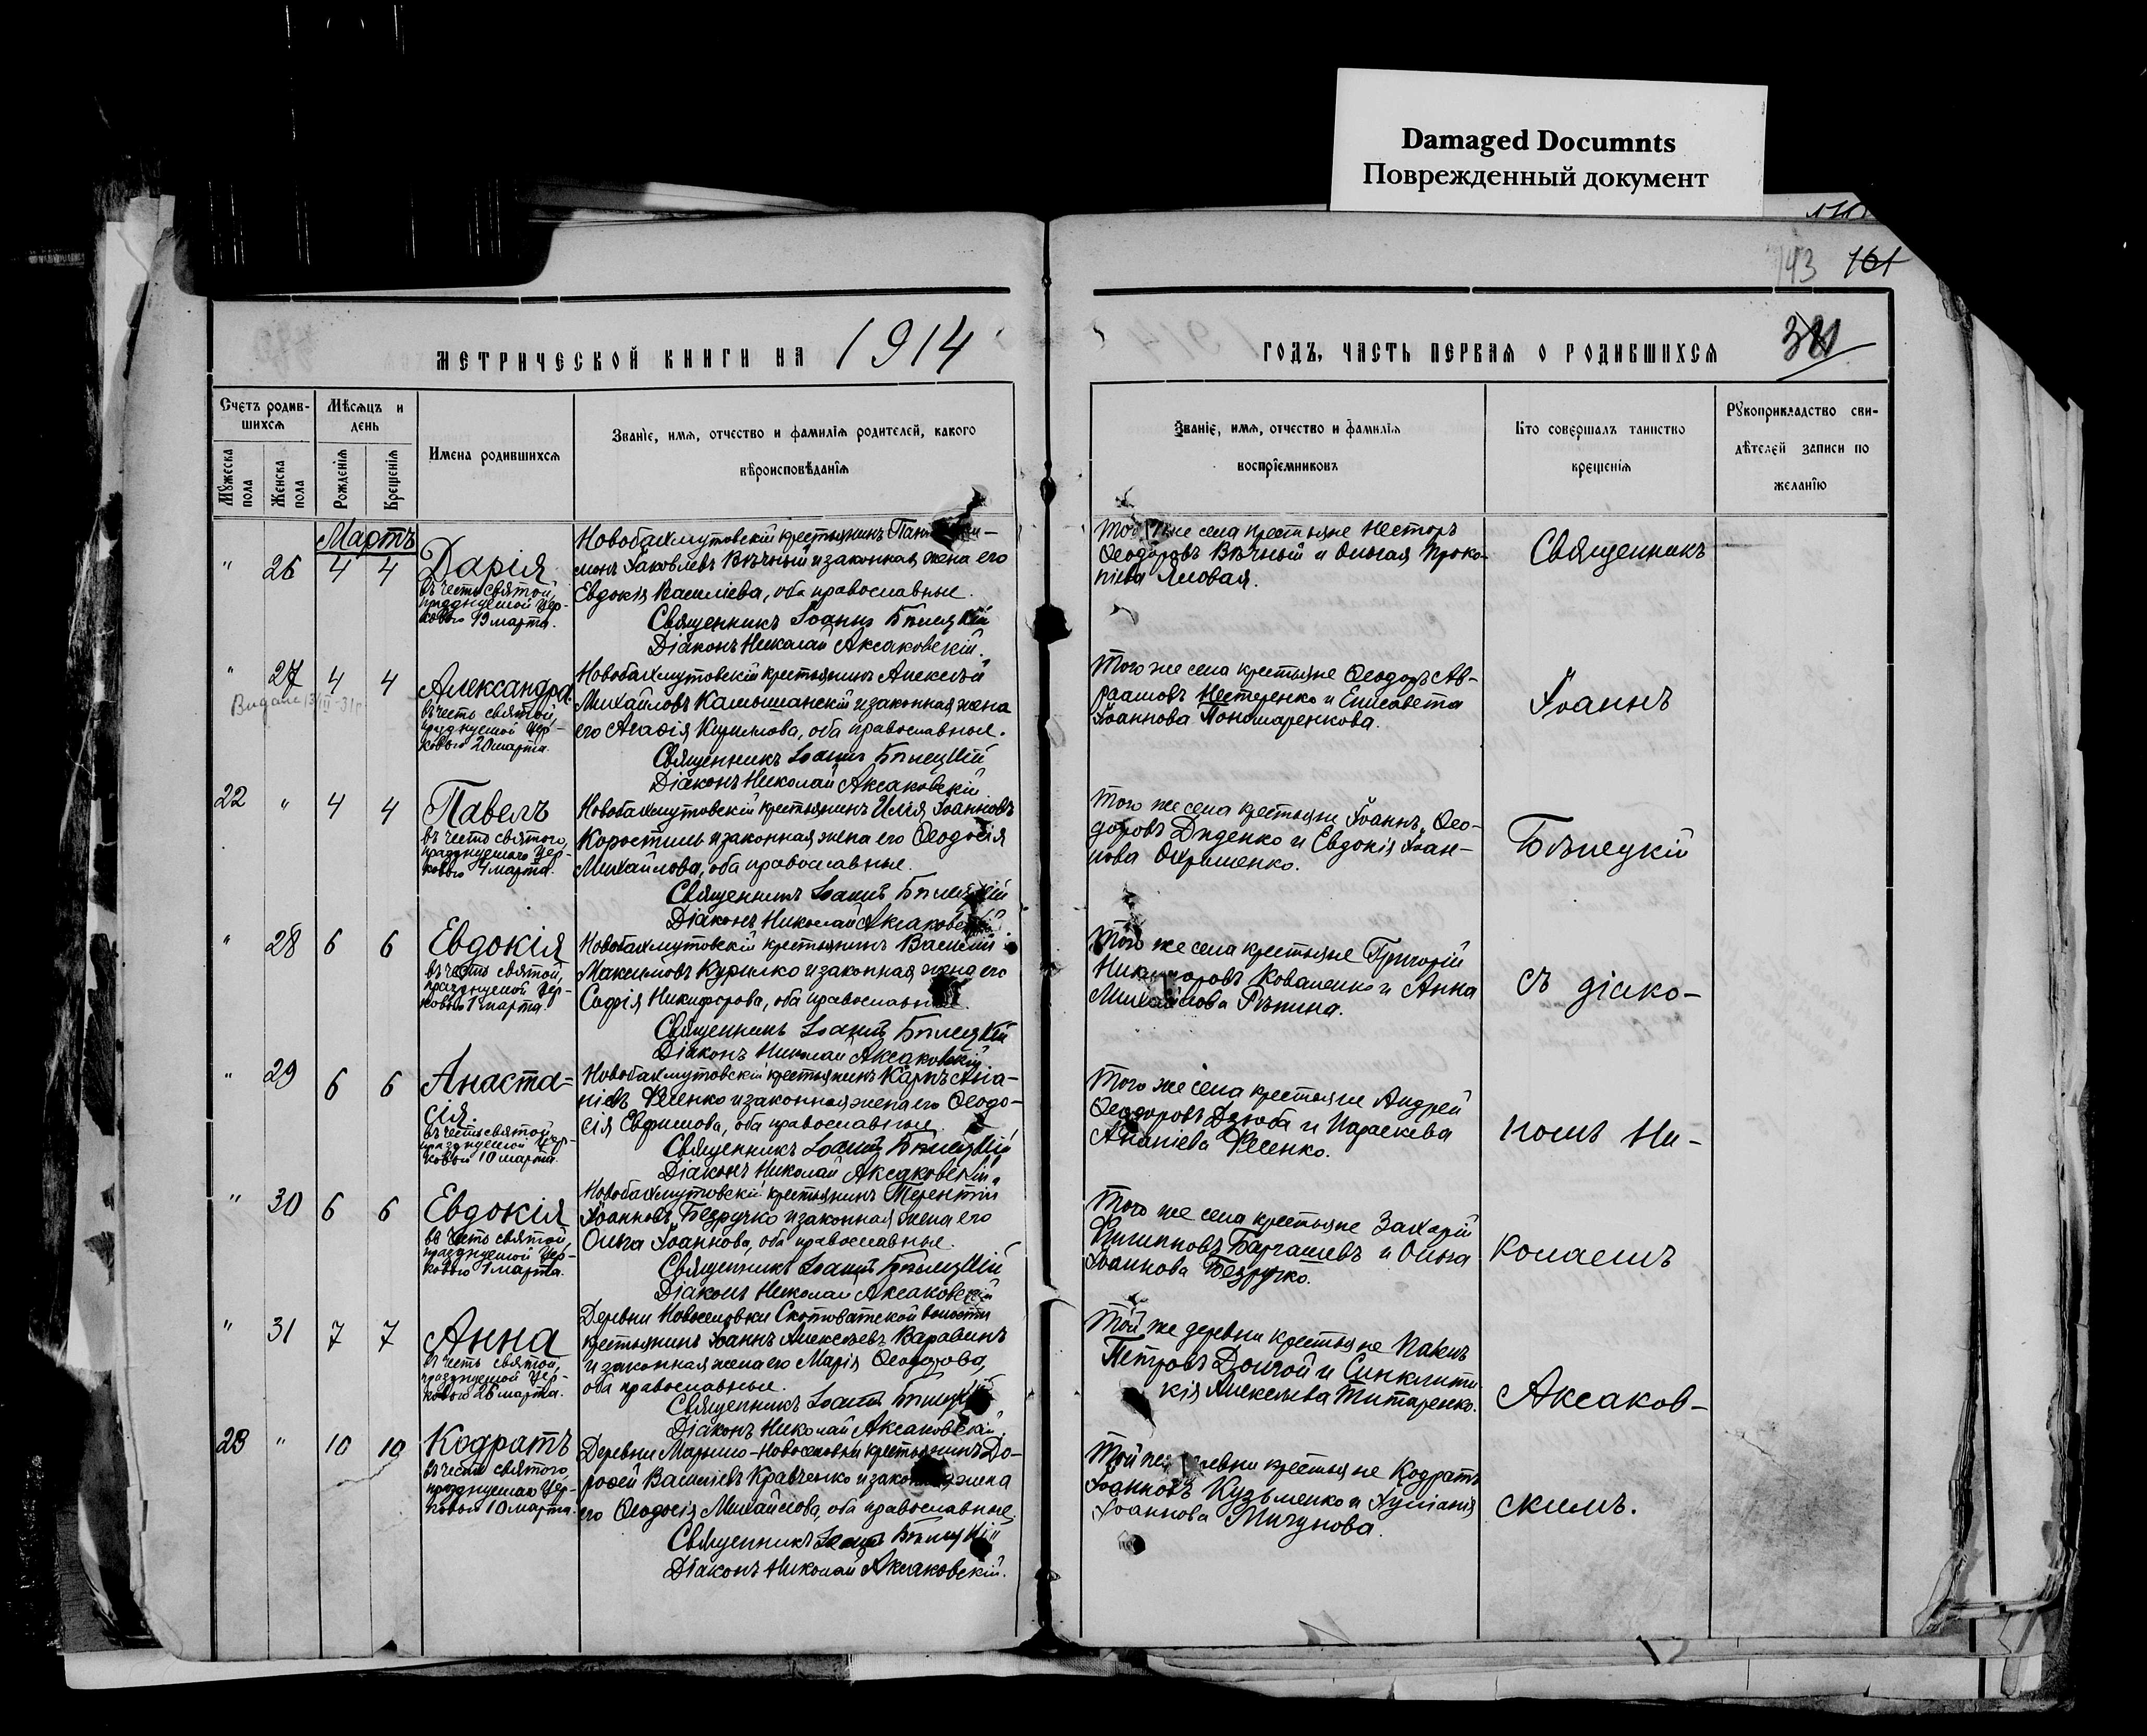 Damaged Documnts
Поврежденный документ
143 161
МЕТРИЧЕСКОЙ КНИГИ НА 1914
ГОДЪ, ЧАСТЬ ПЕРВАЯ О РОДИВШИХСЯ
Счетъ родив-
шихся
Мужеска пола
Женска пола
Мѣсяцъ и
день
Рожденія
Крещенія
Имена родившихся
Званіе, имя, отчество и фамилія родителей, какого
вѣроисповѣданія
Званіе, имя, отчество и фамилія
воспріемниковъ
Кто совершалъ таинство
крещенія
Рукоприкладство сви-
дѣтелей записи по
желанію
Мартъ
" 26 4 4
Дарія
въ честь святой,
празднуемой Цер-
ковью 19 марта.
Новобахмутовскій крестьянинъ
монъ Іаковлевъ Вѣчный и законная жена его
Евдокія Василіева, оба православные.
Священникъ Іоаннъ Бѣлецкій
Діаконъ Николай Аксаковскій.
же села крестьяне Несторъ
Ѳеодоровъ Вѣчный и Ольга Проко-
піева Яловая.
" 27 4 4
Видано
Александра
въ честь святой,
празднуемой Цер-
ковью 20 марта.
Новобахмутовскій крестьянинъ Алексѣй
Михайловъ Камышанскій и законная жена
его Агаѳія Кириллова, оба православные.
Священникъ Іоаннъ Бѣлецкій
Діаконъ Николай Аксаковскій.
Того же села крестьяне Ѳеодоръ Ав-
раамовъ Нестеренко и Елисавета
Іоаннова Пономаренкова.
22 " 4 4
Павелъ
въ честь святого,
празднуемаго Цер-
ковью марта.
Новобахмутовскій крестьянинъ Илія Іоанновъ
Коростиль и законная жена его Ѳеодосія
Михайлова, оба православные.
Священникъ Іоаннъ Бѣлецкій
Діаконъ Николай Аксаковскій
Того же села крестьяне Іоаннъ Ѳео-
доровъ Диденко и Евдокія Іоан-
нова Охрименко.
" 28 6 6
Евдокія
въ честь святой,
празднуемой Цер-
ковью 1 марта.
Новобахмутовскій крестьянинъ Василій
Максимовъ Курилко и законная жена его
Софія Никифорова, оба православные.
Священникъ Іоаннъ Бѣлецкій
Діаконъ Николай Аксаковскій
Того же села крестьяне Григорій
Никифоровъ Коваленко и Анна
Михайлова Рѣпина.
" 29 6 6
Анаста-
сія.
въ честь святой,
празднуемой Цер-
ковью 10 марта.
Новобахмутовскій крестьянинъ Карпъ Ана-
ніевъ Фесенко и законная жена его Ѳеодо-
сія Евфимова, оба православные.
Священникъ Іоаннъ Бѣлецкій
Діаконъ Николай Аксаковскій.
Того же села крестьяне Андрей
Ѳеодоровъ Дзюба и Параскева
Ананіева Фесенко.
" 30 6 6
Евдокія
въ честь святой,
празднуемой Цер-
ковью 1 марта.
Новобахмутовскій крестьянинъ Терентій
Іоанновъ Безручко и законная жена его
Ольга Іоаннова, оба православные.
Священникъ Іоаннъ Бѣлецкій
Діаконъ Николай Аксаковскій
Того же села крестьяне Захарій
Филипповъ и Ольга
Іоаннова Безручко.
" 31 7 7
Анна
въ честь святой,
празднуемой Цер-
ковью 26 марта.
Деревни Новоселовки Скотоватской волости
крестьянинъ Іоаннъ Алексѣевъ Варавинъ
и законная жена его Марія Ѳеодорова,
оба православные.
Священникъ Іоаннъ Бѣлецкій
Діаконъ Николай Аксаковскій.
Той же деревни крестьяне Павелъ
Петровъ Долгой и Синклити-
кія Алексѣева Титаренко.
23 " 10 10
Кодратъ
въ честь святого,
празднуемаго Цер-
ковью 10 марта.
Деревни Марьино-Новоселовки крестьянинъ До-
роѳей Василіевъ Кравченко и законная жена
его Ѳеодосія Михайлова, оба православные.
Священникъ Іоаннъ Бѣлецкій
Діаконъ Николай Аксаковскій.
Той же деревни крестьяне Кодратъ
Іоанновъ Кузьменко и Іуліанія
Іоаннова Мигунова.
Священникъ
Іоаннъ
Бѣлецкій
съ діако-
номъ Ни-
колаемъ
Аксаков-
скимъ.